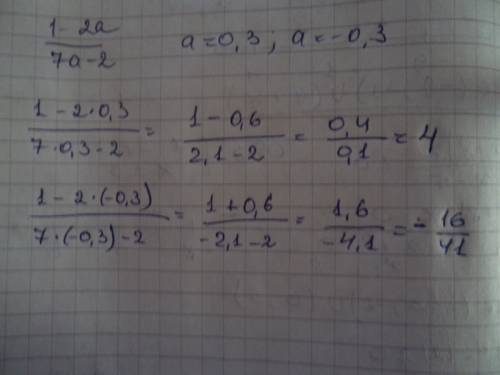 (1 - 2a)/(7a - 2)    a = 0,3 ; a = -0,3
(1 - 2·0,3)/(7·0,3 - 2) = (1 - 0,6)/(2,1 - 2) = 0,4/0,1 = 4
(1 - 2·(-0,3))/(7·(-0,3) - 2) = (1 + 0,6)/(-2,1 - 2) = 1,6/(-4,1) = - 16/41